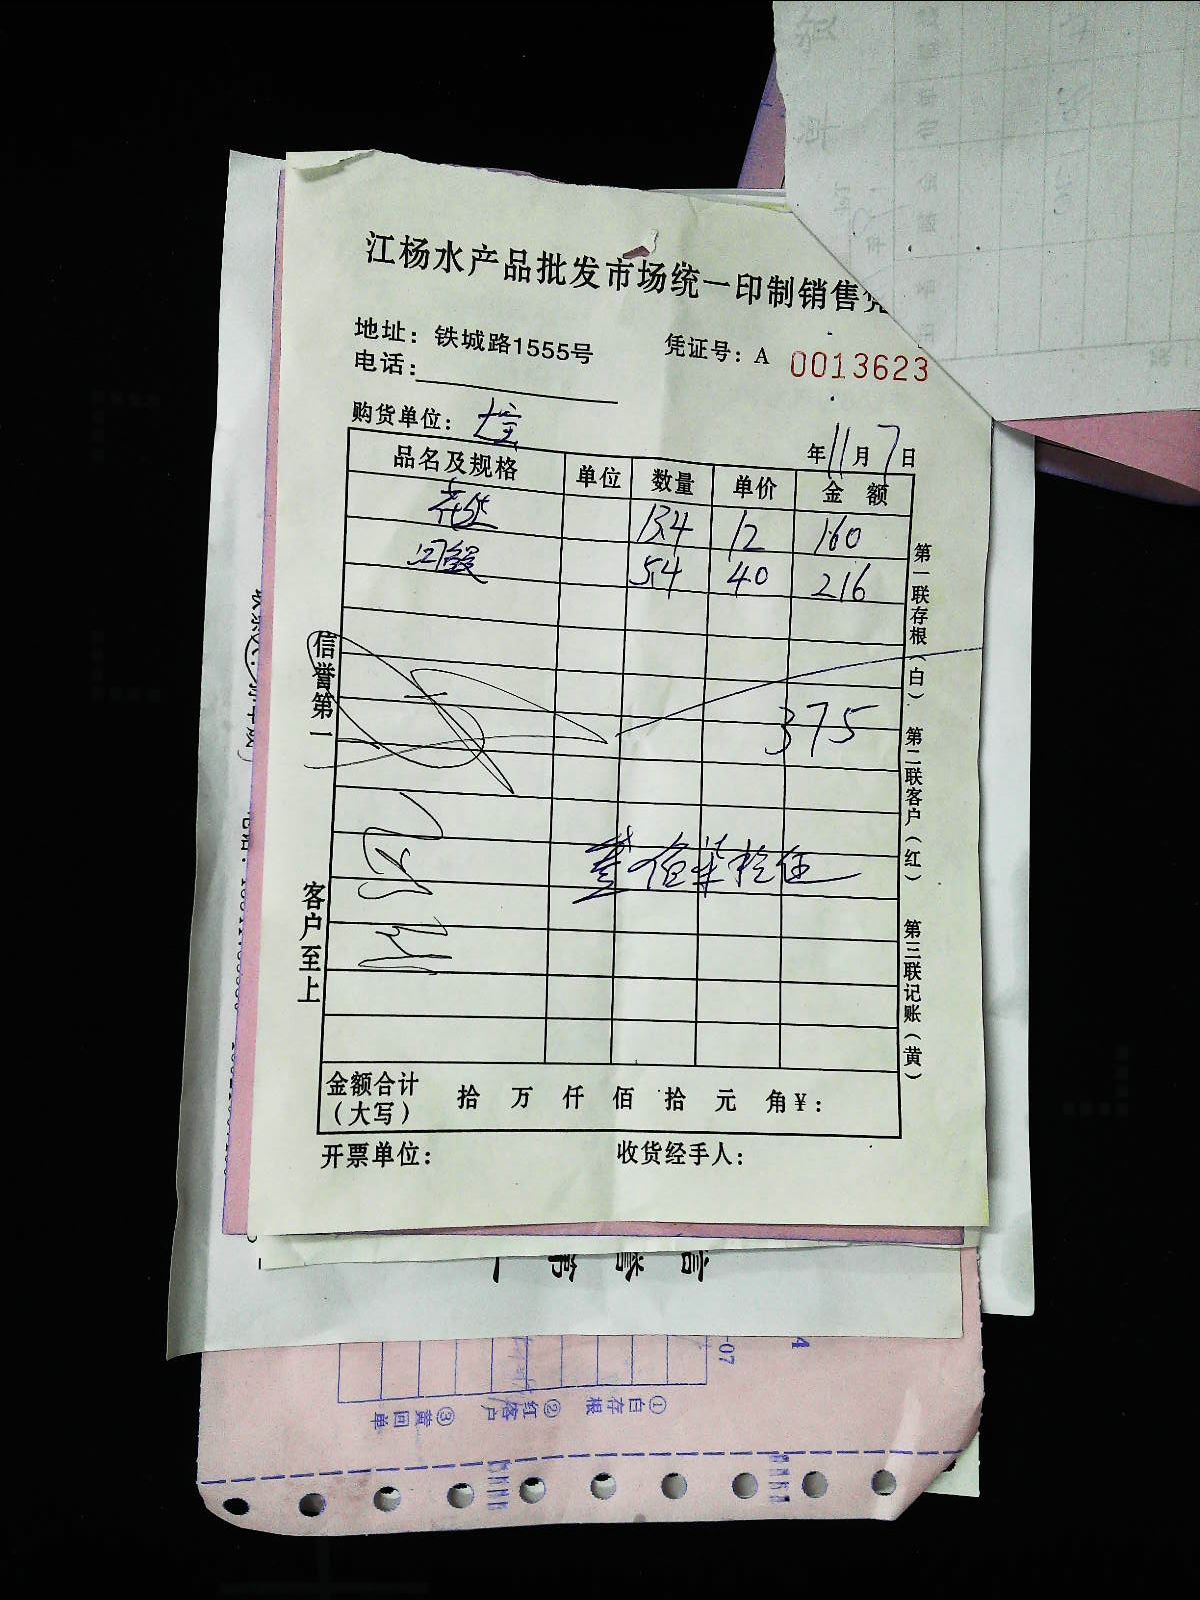 江杨水产品批发市场统一印制销售
地址：铁城路1555号
凭证号：A 0013623
电话：
购货单位：
年11月7日
品名及规格 单位 数量 单价 金额
13.4 12 160
河鳗 5.4 40 216
375
叁佰柒拾伍
金额合计（大写） 拾 万 仟 佰 拾 元 角￥：
开票单位： 收货经手人：
信誉第一
客户至上
第一联存根（白）
第二联客户（红）
第三联记账（黄）
信誉第一
-07
①白存根 ②红客户 ③黄回单